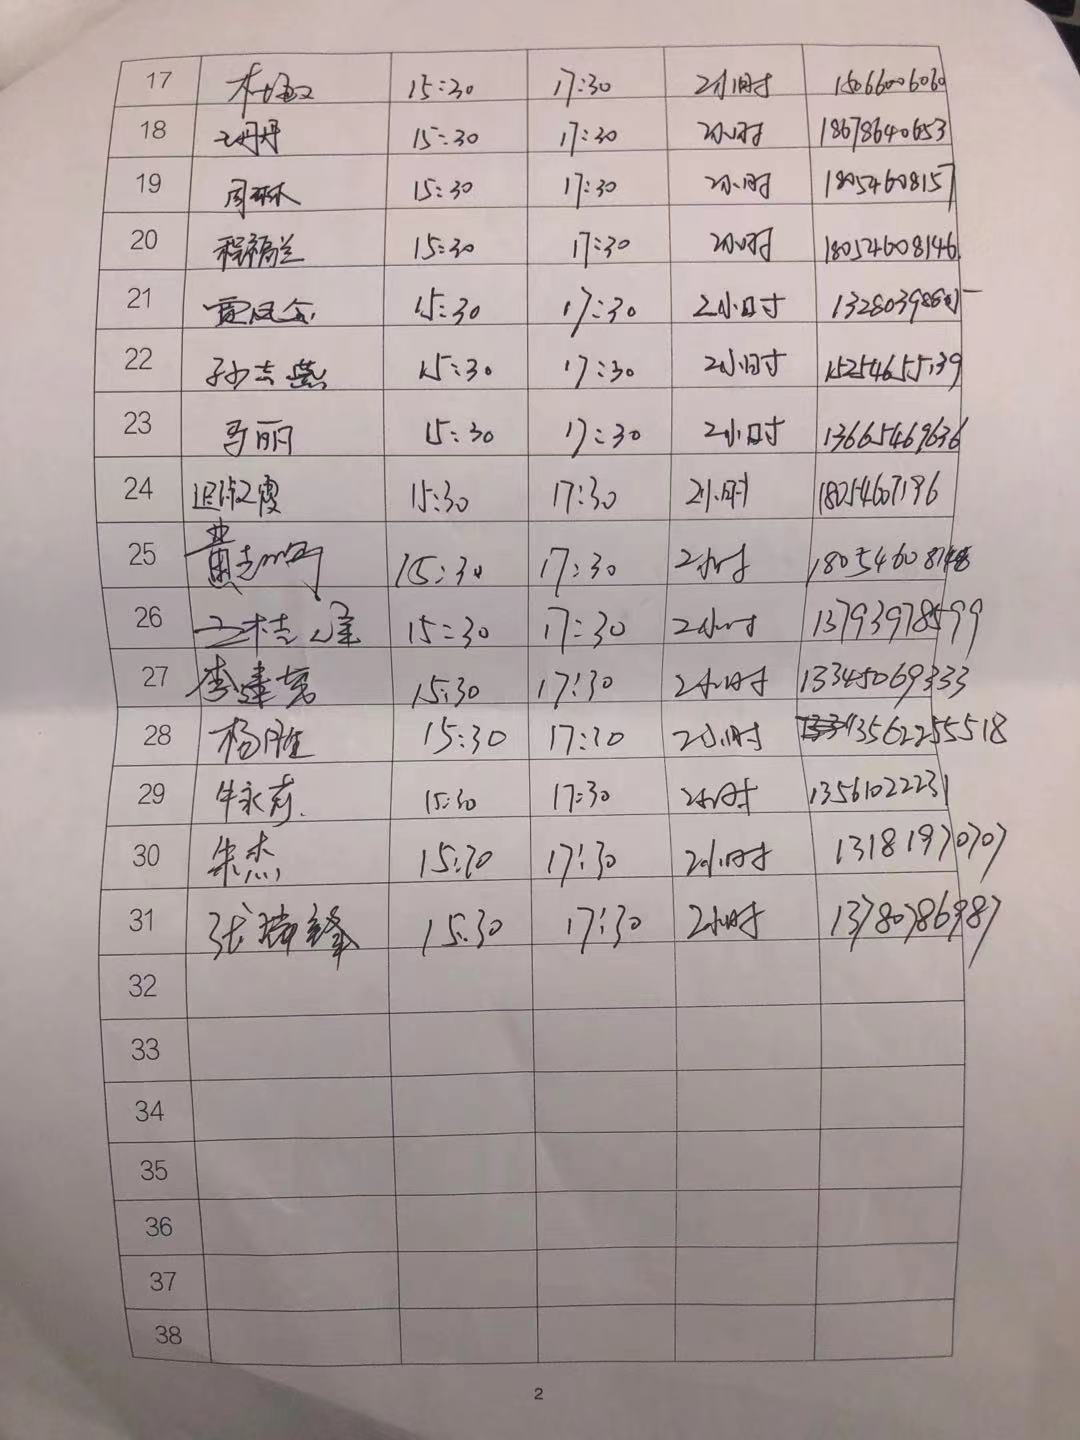 17 15:30 17:30 2小时 15066006060
18 王丹丹 15:30 17:30 2小时 18678640653
19 周琳 15:30 17:30 2小时 18054608157
20 程福兰 15:30 17:30 2小时 18054608146
21 15:30 17:30 2小时
22 孙吉燕 15:30 17:30 2小时 15254655139
23 马丽 15:30 17:30 2小时 13665469636
24 15:30 17:30 2小时 18054607196
25 15:30 17:30 2小时
26 15:30 17:30 2小时 13793978599
27 15:30 17:30 2小时 13345069333
28 杨胜 15:30 17:30 2小时 13562255518
29 牛永 15:30 17:30 2小时 13561022231
30 朱杰 15:30 17:30 2小时 13181970707
31 张瑞锋 15:30 17:30 2小时 13780786987
32
33
34
35
36
37
38
2